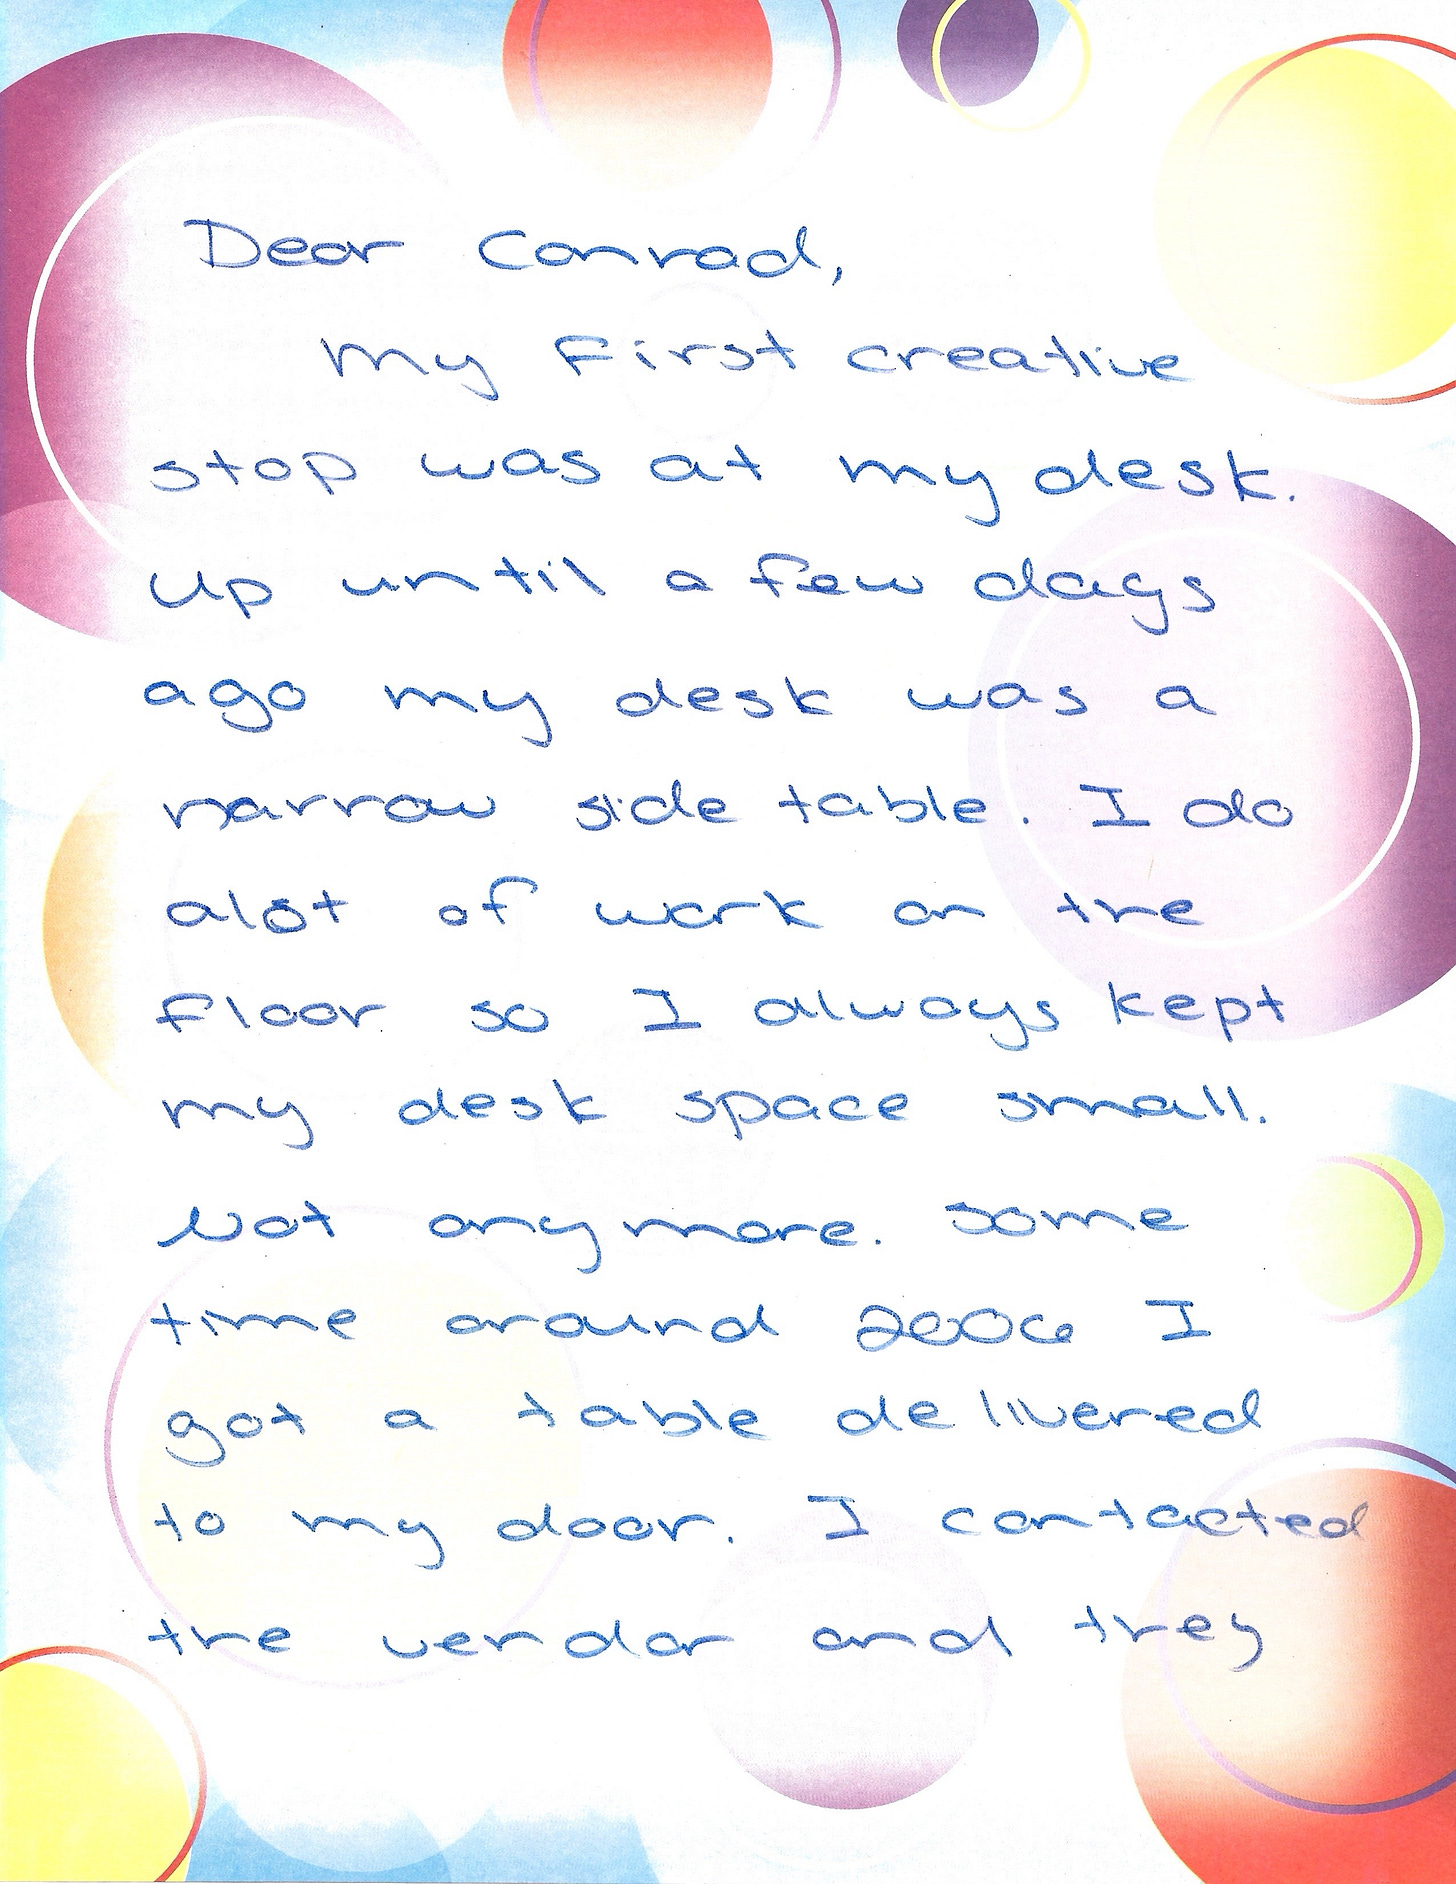 Dear Conrad,
My first creative
stop was at my desk.
Up until a few days
ago my desk was a
narrow side table. I do
alot of work on the
floor so I always kept
my desk space small.
Not anymore. Some
time around 2006 I
got a table delivered
to my door. I contacted
the vendor and they